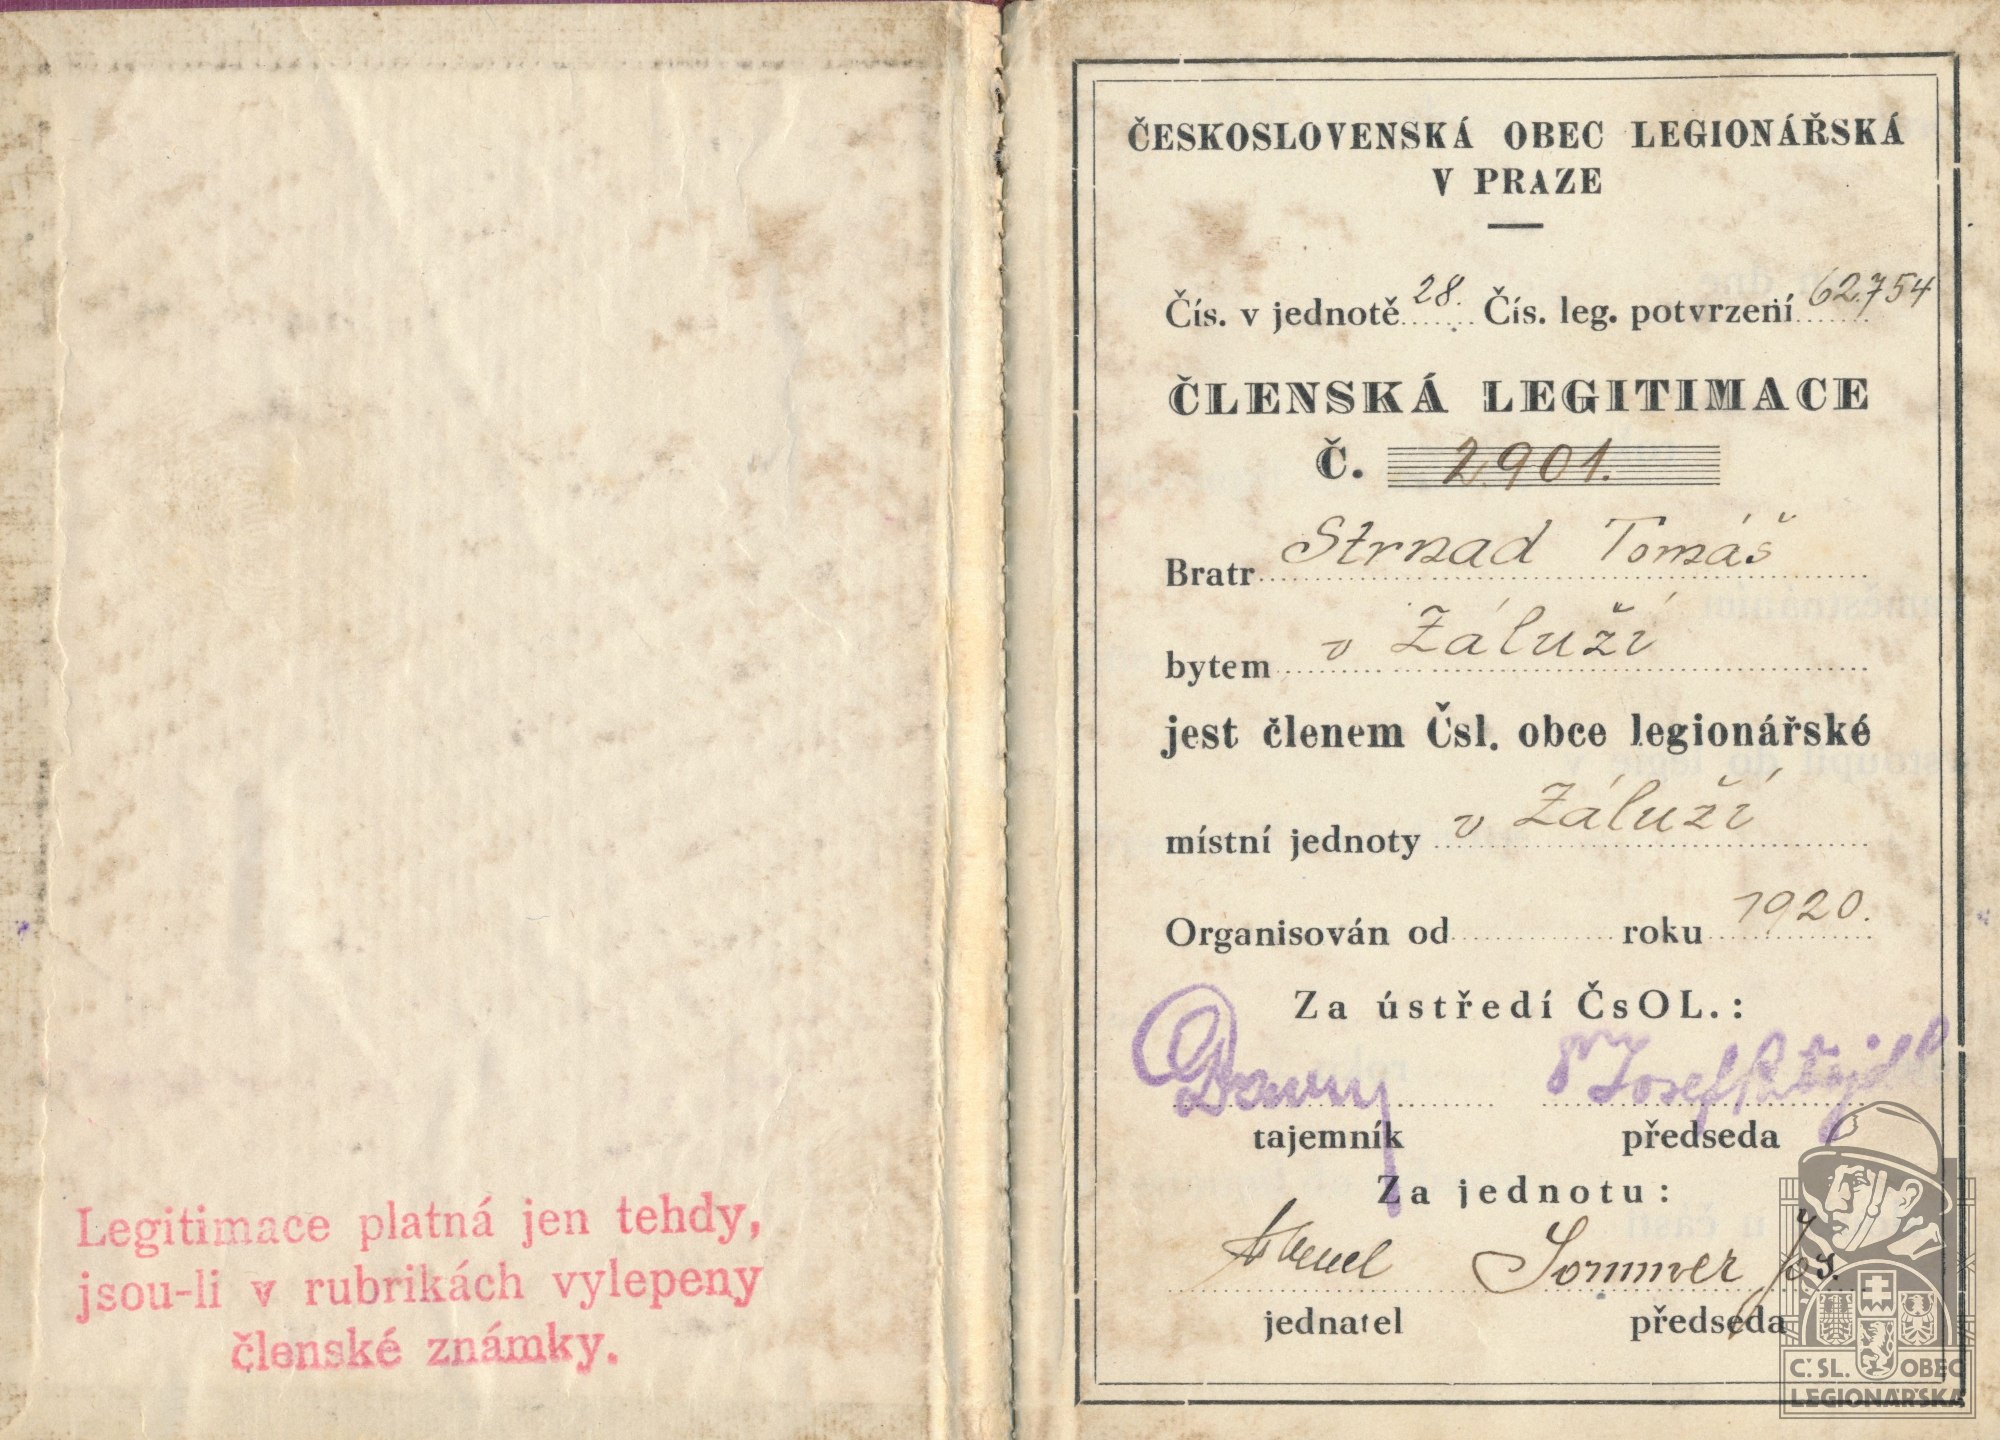 Legitimace platná jen tehdy,
jsou-li v rubrikách vylepeny
členské známky.
ČESKOSLOVENSKÁ OBEC LEGIONÁŘSKÁ
V PRAZE
Čís. v jednotě 28. Čís. leg. potvrzení 62.754
ČLENSKÁ LEGITIMACE
Č. 2901.
Bratr Strnad Tomáš
bytem v Záluží
jest členem Čsl. obce legionářské
místní jednoty v Záluží
Organisován od roku 1920.
Za ústředí ČsOL.:
Josef
tajemník předseda
Za jednotu:
Sommer Jos.
jednatel předseda
Č. SL. OBEC
LEGIONÁŘSKÁ